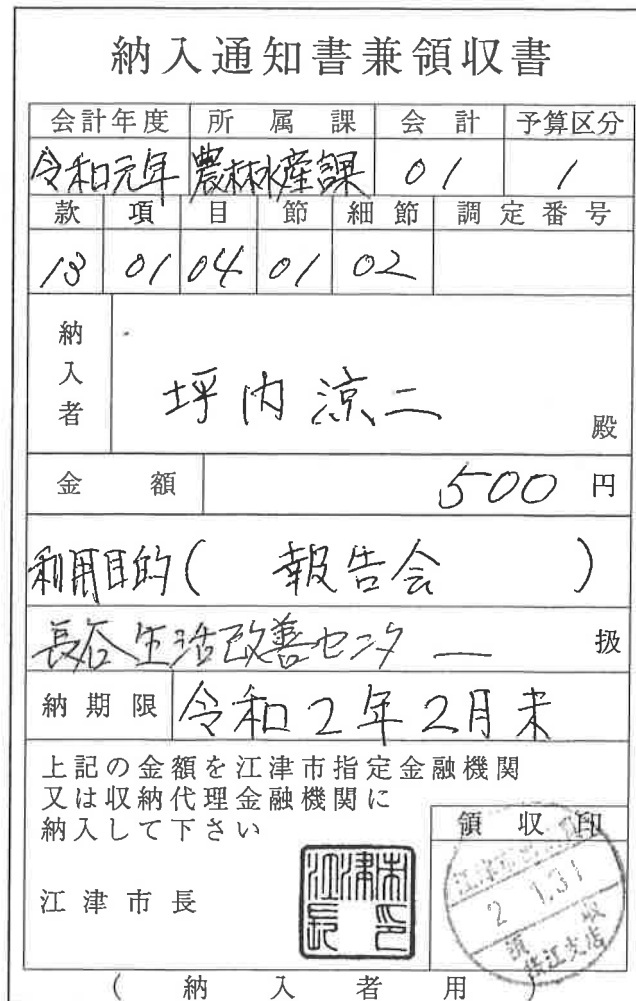 納入通知書兼領収書
会計年度 所属課 会計 予算区分
令和元年 農林水産課 01 1
款 項 目 節 細節 調定番号
13 01 04 01 02
納入者 坪内涼二 殿
金額 500 円
利用目的( 報告会 )
長谷生活改善センター 扱
納期限 令和2年2月末
上記の金額を江津市指定金融機関
又は収納代理金融機関に
納入して下さい
領収印
江津市長
2 1.31
領収
桜江支店
( 納入者用 )